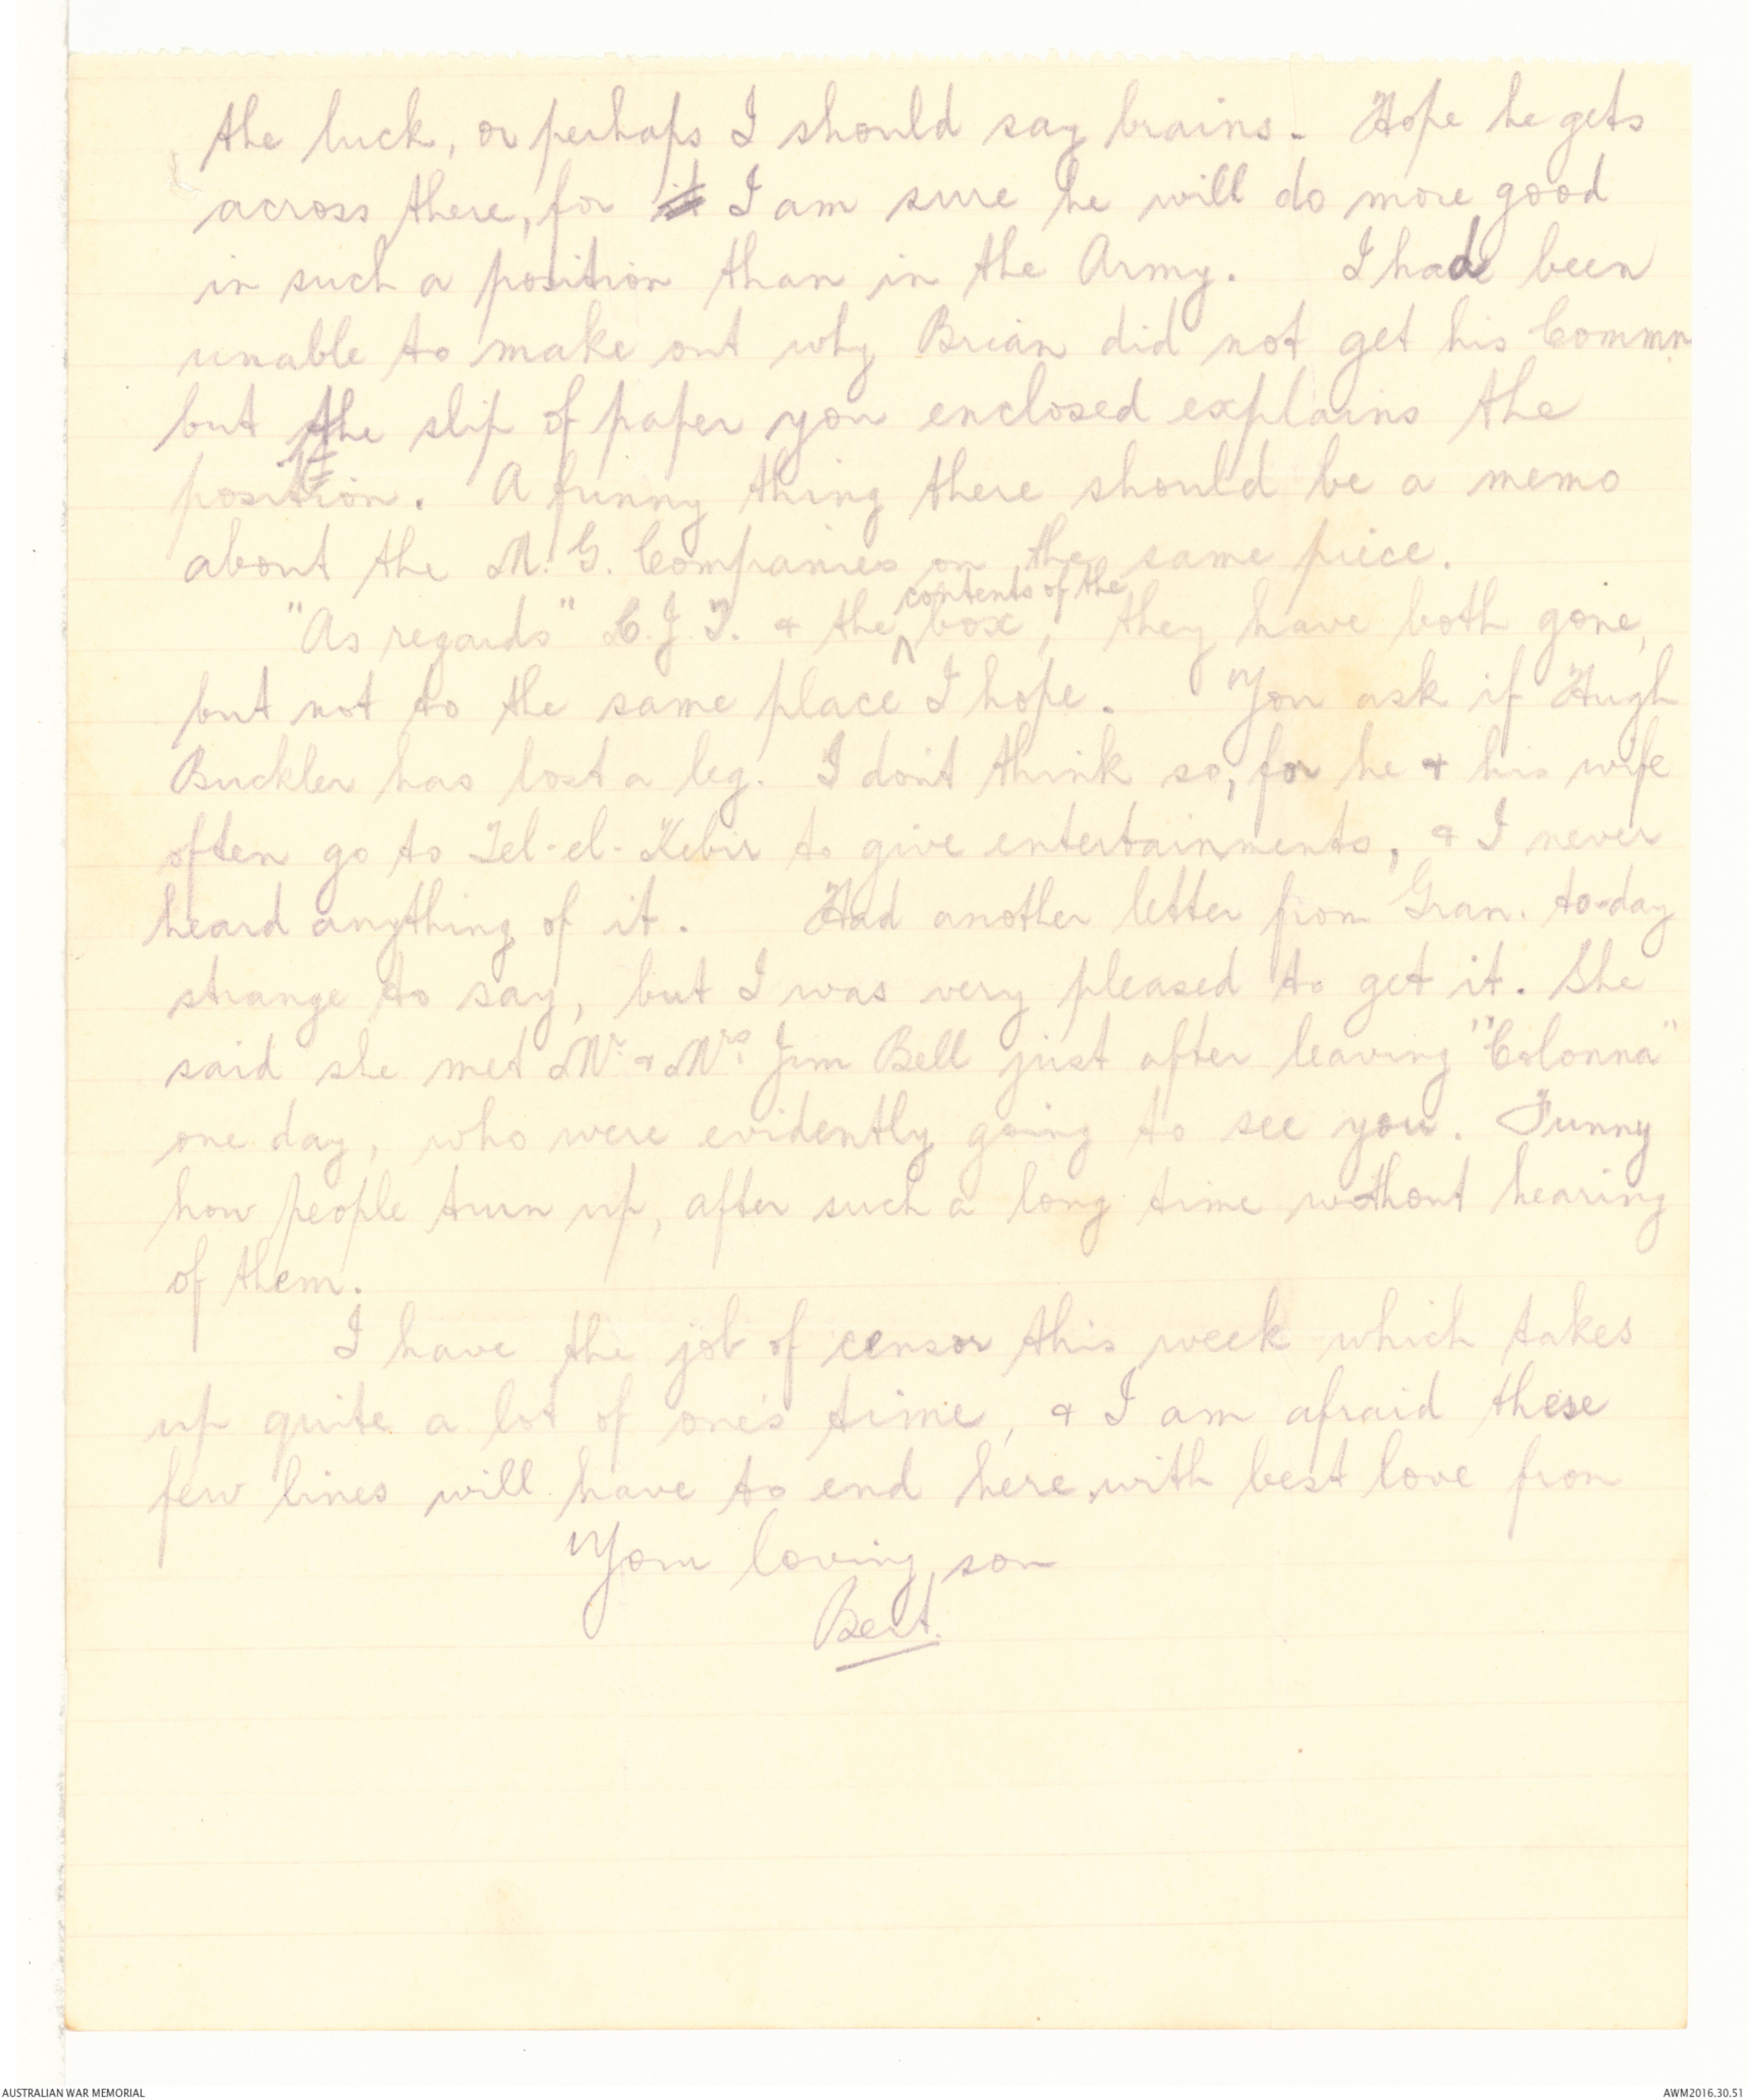 the luck, or perhaps I should say brains. Hope he gets
across there, for it I am sure he will do more good
in such a position than in the Army. I had been
unable to make out why Brian did not get his Commn.
but the slip of paper you enclosed explains the
position. A funny thing there should be a memo
about the M.G. Companies on the same piece.
contents of the
"As regards" & the box, they have both gone,
but not to the same place I hope. You ask if Hugh
Buckler has lost a leg. I don't think so, for he & his wife
often go to Tel-el-Kebir to give entertainments, & I never
heard anything of it. Had another letter from Gran. to-day
strange to say, but I was very pleased to get it. She
said she met Mr. & Mrs. Jim Bell just after leaving "Colonna"
one day, who were evidently going to see you. Funny
how people turn up, after such a long time without hearing
of them.
I have the job of censor this week which takes
up quite a lot of one's time, & I am afraid these
few lines will have to end here, with best love from
Your loving son
Bert.
AUSTRALIAN WAR MEMORIAL
AWM2016.30.51